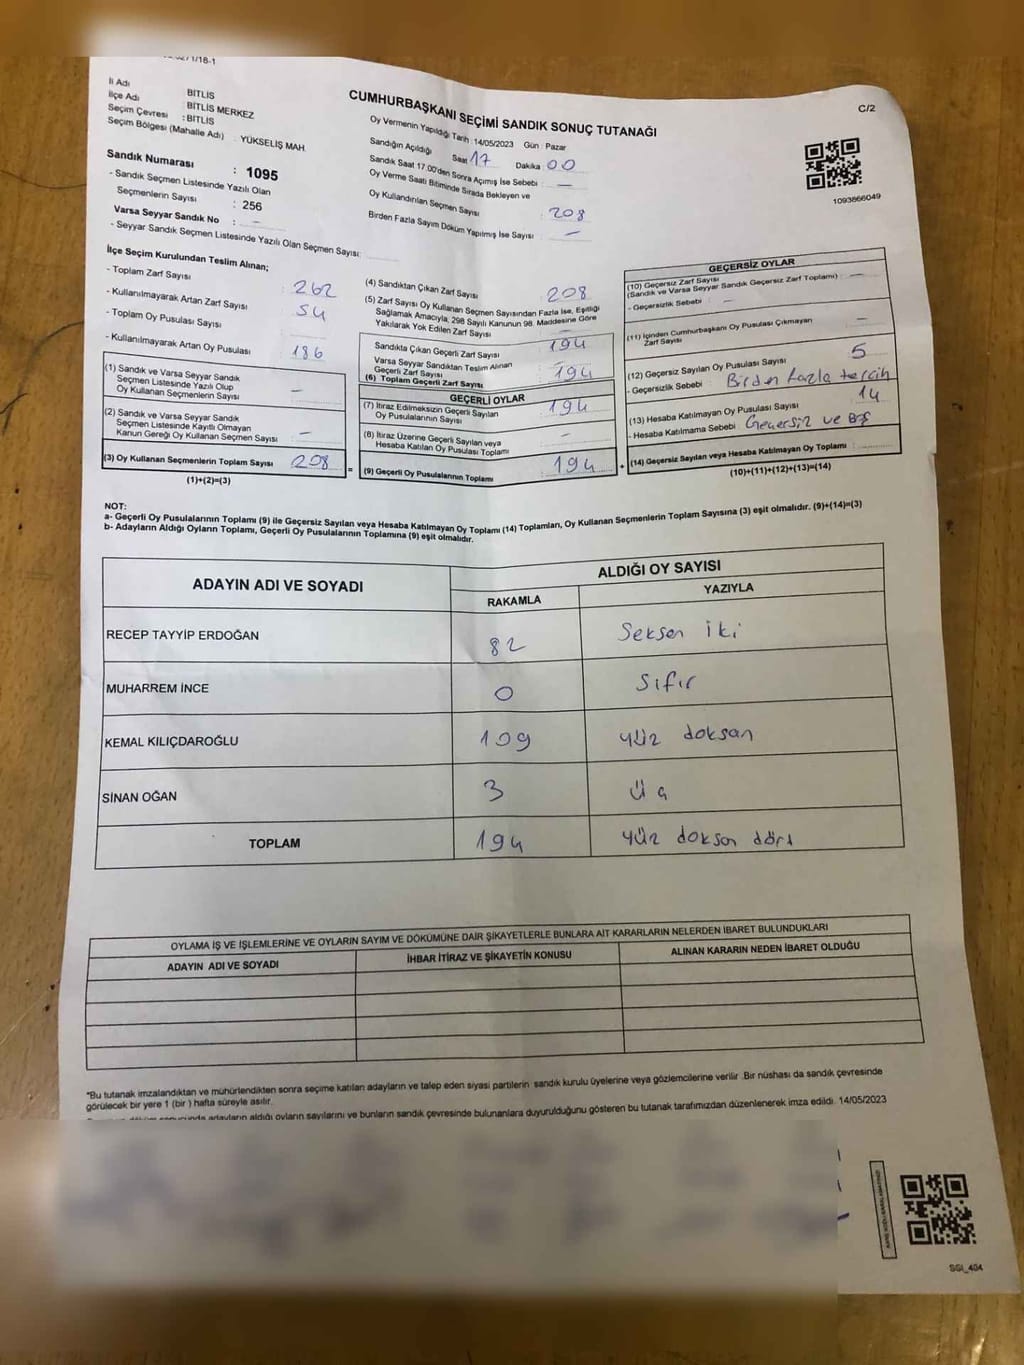 İl Adı BİTLİS
İlçe Adı BİTLİS MERKEZ
Seçim Çevresi : BİTLİS
Seçim Bölgesi (Mahalle Adı) : YÜKSELİŞ MAH.
Sandık Numarası : 1095
- Sandık Seçmen Listesinde Yazılı Olan
Seçmenlerin Sayısı : 256
Varsa Seyyar Sandık No : –
- Seyyar Sandık Seçmen Listesinde Yazılı Olan Seçmen Sayısı:
CUMHURBAŞKANI SEÇİMİ SANDIK SONUÇ TUTANAĞI
C/2
Oy Vermenin Yapıldığı Tarih : 14/05/2023 Gün : Pazar
Sandığın Açıldığı Saat 17 Dakika : 00
Sandık Saat 17.00'den Sonra Açımış İse Sebebi : –
Oy Verme Saati Bitiminde Sırada Bekleyen ve
Oy Kullandırılan Seçmen Sayısı : 208
Birden Fazla Sayım Döküm Yapılmış İse Sayısı : –
1093866049
İlçe Seçim Kurulundan Teslim Alınan;
- Toplam Zarf Sayısı : 262
- Kullanılmayarak Artan Zarf Sayısı : 54
- Toplam Oy Pusulası Sayısı :
- Kullanılmayarak Artan Oy Pusulası : 186
(1) Sandık ve Varsa Seyyar Sandık
Seçmen Listesinde Yazılı Olup
Oy Kullanan Seçmenlerin Sayısı : –
(2) Sandık ve Varsa Seyyar Sandık
Seçmen Listesinde Kayıtlı Olmayan
Kanun Gereği Oy Kullanan Seçmen Sayısı : –
(3) Oy Kullanan Seçmenlerin Toplam Sayısı : 208
(1)+(2)=(3)
(4) Sandıktan Çıkan Zarf Sayısı : 208
(5) Zarf Sayısı Oy Kullanan Seçmen Sayısından Fazla İse, Eşitliği
Sağlamak Amacıyla, 298 Sayılı Kanunun 98. Maddesine Göre
Yakılarak Yok Edilen Zarf Sayısı : –
Sandıkta Çıkan Geçerli Zarf Sayısı : 194
Varsa Seyyar Sandıktan Teslim Alınan
Geçerli Zarf Sayısı
(6) Toplam Geçerli Zarf Sayısı : 194
GEÇERLİ OYLAR
(7) İtiraz Edilmeksizin Geçerli Sayılan
Oy Pusulalarının Sayısı : 194
(8) İtiraz Üzerine Geçerli Sayılan veya
Hesaba Katılan Oy Pusulası Toplamı : –
(9) Geçerli Oy Pusulalarının Toplamı : 194
GEÇERSİZ OYLAR
(10) Geçersiz Zarf Sayısı : –
(Sandık ve Varsa Seyyar Sandık Geçersiz Zarf Toplamı)
- Geçersizlik Sebebi : –
(11) İçinden Cumhurbaşkanı Oy Pusulası Çıkmayan
Zarf Sayısı : –
(12) Geçersiz Sayılan Oy Pusulası Sayısı : 5
- Geçersizlik Sebebi : Birden fazla tercih
(13) Hesaba Katılmayan Oy Pusulası Sayısı : 14
- Hesaba Katılmama Sebebi : Geçersiz ve Boş
(14) Geçersiz Sayılan veya Hesaba Katılmayan Oy Toplamı :
(10)+(11)+(12)+(13)=(14)
NOT:
a- Geçerli Oy Pusulalarının Toplamı (9) ile Geçersiz Sayılan veya Hesaba Katılmayan Oy Toplamı (14) Toplamları, Oy Kullanan Seçmenlerin Toplam Sayısına (3) eşit olmalıdır. (9)+(14)=(3)
b- Adayların Aldığı Oyların Toplamı, Geçerli Oy Pusulalarının Toplamına (9) eşit olmalıdır.
ADAYIN ADI VE SOYADI ALDIĞI OY SAYISI
RAKAMLA YAZIYLA
RECEP TAYYİP ERDOĞAN 82 Seksen iki
MUHARREM İNCE 0 Sıfır
KEMAL KILIÇDAROĞLU 109 yüz doksan
SİNAN OĞAN 3 Üç
TOPLAM 194 yüz doksan dört
OYLAMA İŞ VE İŞLEMLERİNE VE OYLARIN SAYIM VE DÖKÜMÜNE DAİR ŞİKAYETLERLE BUNLARA AİT KARARLARIN NELERDEN İBARET BULUNDUKLARI
ADAYIN ADI VE SOYADI İHBAR İTİRAZ VE ŞİKAYETİN KONUSU ALINAN KARARIN NEDEN İBARET OLDUĞU
*Bu tutanak imzalandıktan ve mühürlendikten sonra seçime katılan adayların ve talep eden siyasi partilerin sandık kurulu üyelerine veya gözlemcilerine verilir .Bir nüshası da sandık çevresinde
görülecek bir yere 1 (bir ) hafta süreyle asılır.
adayların aldığı oyların sayılarını ve bunların sandık çevresinde bulunanlara duyurulduğunu gösteren bu tutanak tarafımızdan düzenlenerek imza edildi. 14/05/2023
SGI_404